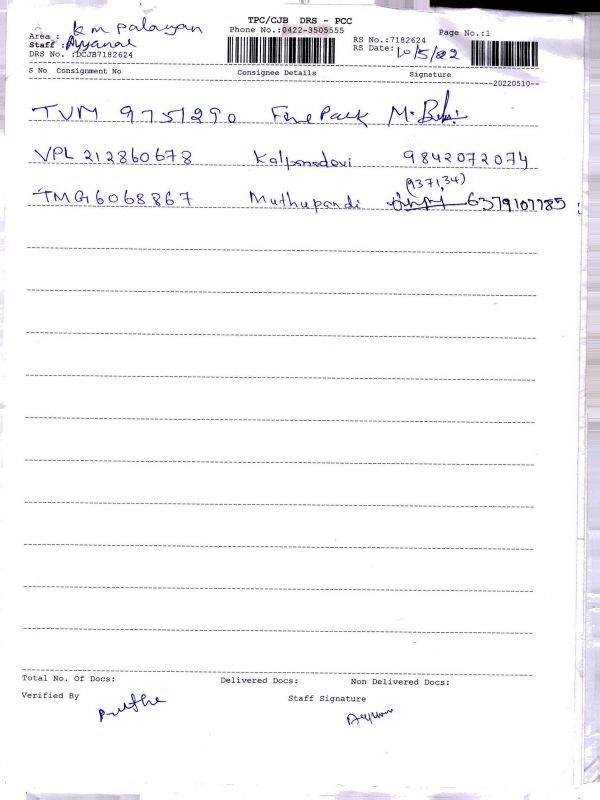 TPC/CJB DRS - PCC
K m palayan
Area :
Phone No.:0422-3505555
Page No.:1
Staff : Ayyanar
RS No.:7182624
DRS No. :DCJB7182624
RS Date: 10/5/22
S No Consignment No Consignee Details Signature
20220510
TVM 9751290 Fine Pack M.
VPL 212860678 Kalpanadevi 9842072074
(9371,34)
TMG6068867 Muthupandi 6379107785
Total No. Of Docs: Delivered Docs: Non Delivered Docs:
Verified By Staff Signature